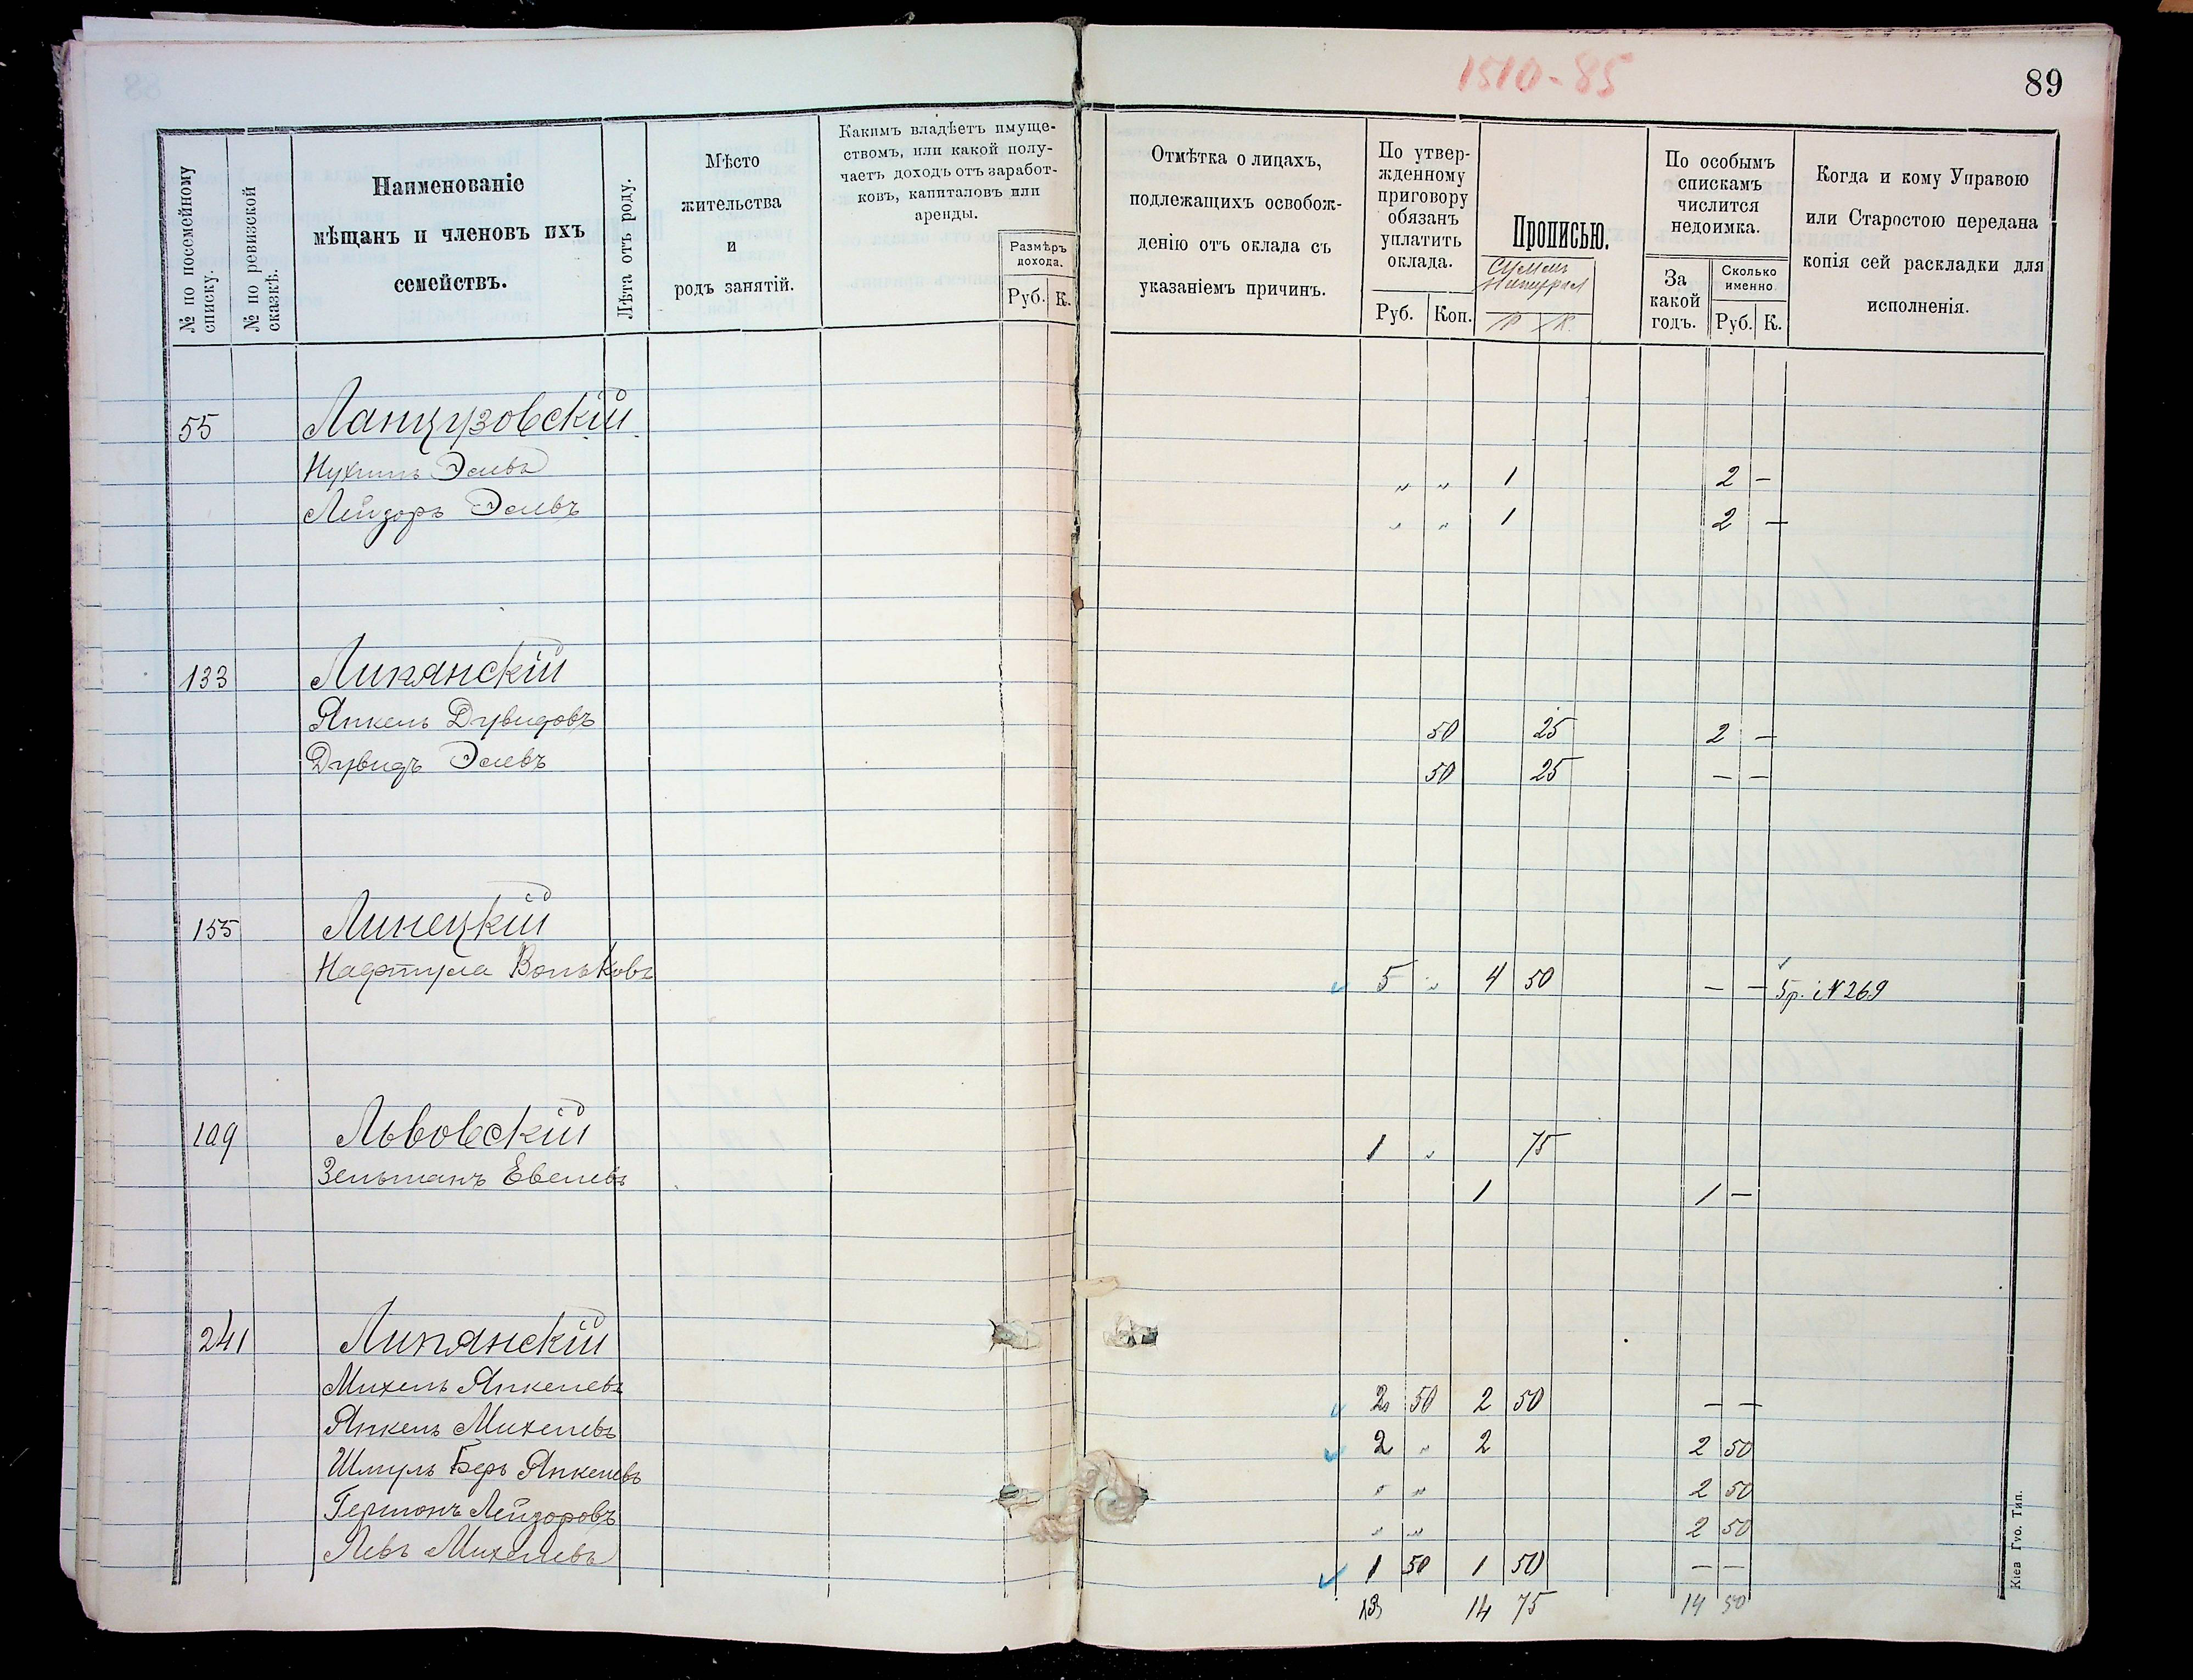 1510-85
89
№ по посемейному списку.
№ по ревизской сказкѣ.
Наименованіе
мѣщанъ и членовъ ихъ
семействъ.
Лѣта отъ роду.
Мѣсто
жительства
и
родъ занятій.
Какимъ владѣетъ имуще-
ствомъ, или какой полу-
чаетъ доходъ отъ заработ-
ковъ, капиталовъ или
аренды.
Размѣръ
дохода.
Руб. К.
Отмѣтка о лицахъ,
подлежащихъ освобож-
денію отъ оклада съ
указаніемъ причинъ.
По утвер-
жденному
приговору
обязанъ
уплатить
оклада.
Руб. Коп.
Прописью.
Р К.
По особымъ
спискамъ
числится
недоимка.
За
какой
годъ.
Сколько
именно.
Руб. К.
Когда и кому Управою
или Старостою передана
копія сей раскладки для
исполненія.
55 Ланцузовскій
Нухимъ Эльевъ „ „ 1 2 —
Лейзоръ Эльевъ „ „ 1 2 —
133 Липянскій
Янкель Дувидовъ 50 25 2 —
Дувидъ Эльевъ 50 25 — —
155 Линецкій
Нафтула Вольковъ 5 „ 4 50 — — 5р. № 269
109 Львовскій 1 „ 75
Зельманъ Евелевъ 1 1 —
241 Липянскій
Михель Янкелевъ 2 50 2 50 — —
Янкель Михелевъ 2 „ 2 2 50
Шмуль Беръ Янкелевъ „ „ 2 50
Гершонъ Лейзоровъ „ „ 2 50
Левъ Михелевъ 1 50 1 50 — —
13 14 75 14 50
Кіев Гуо. Тип.